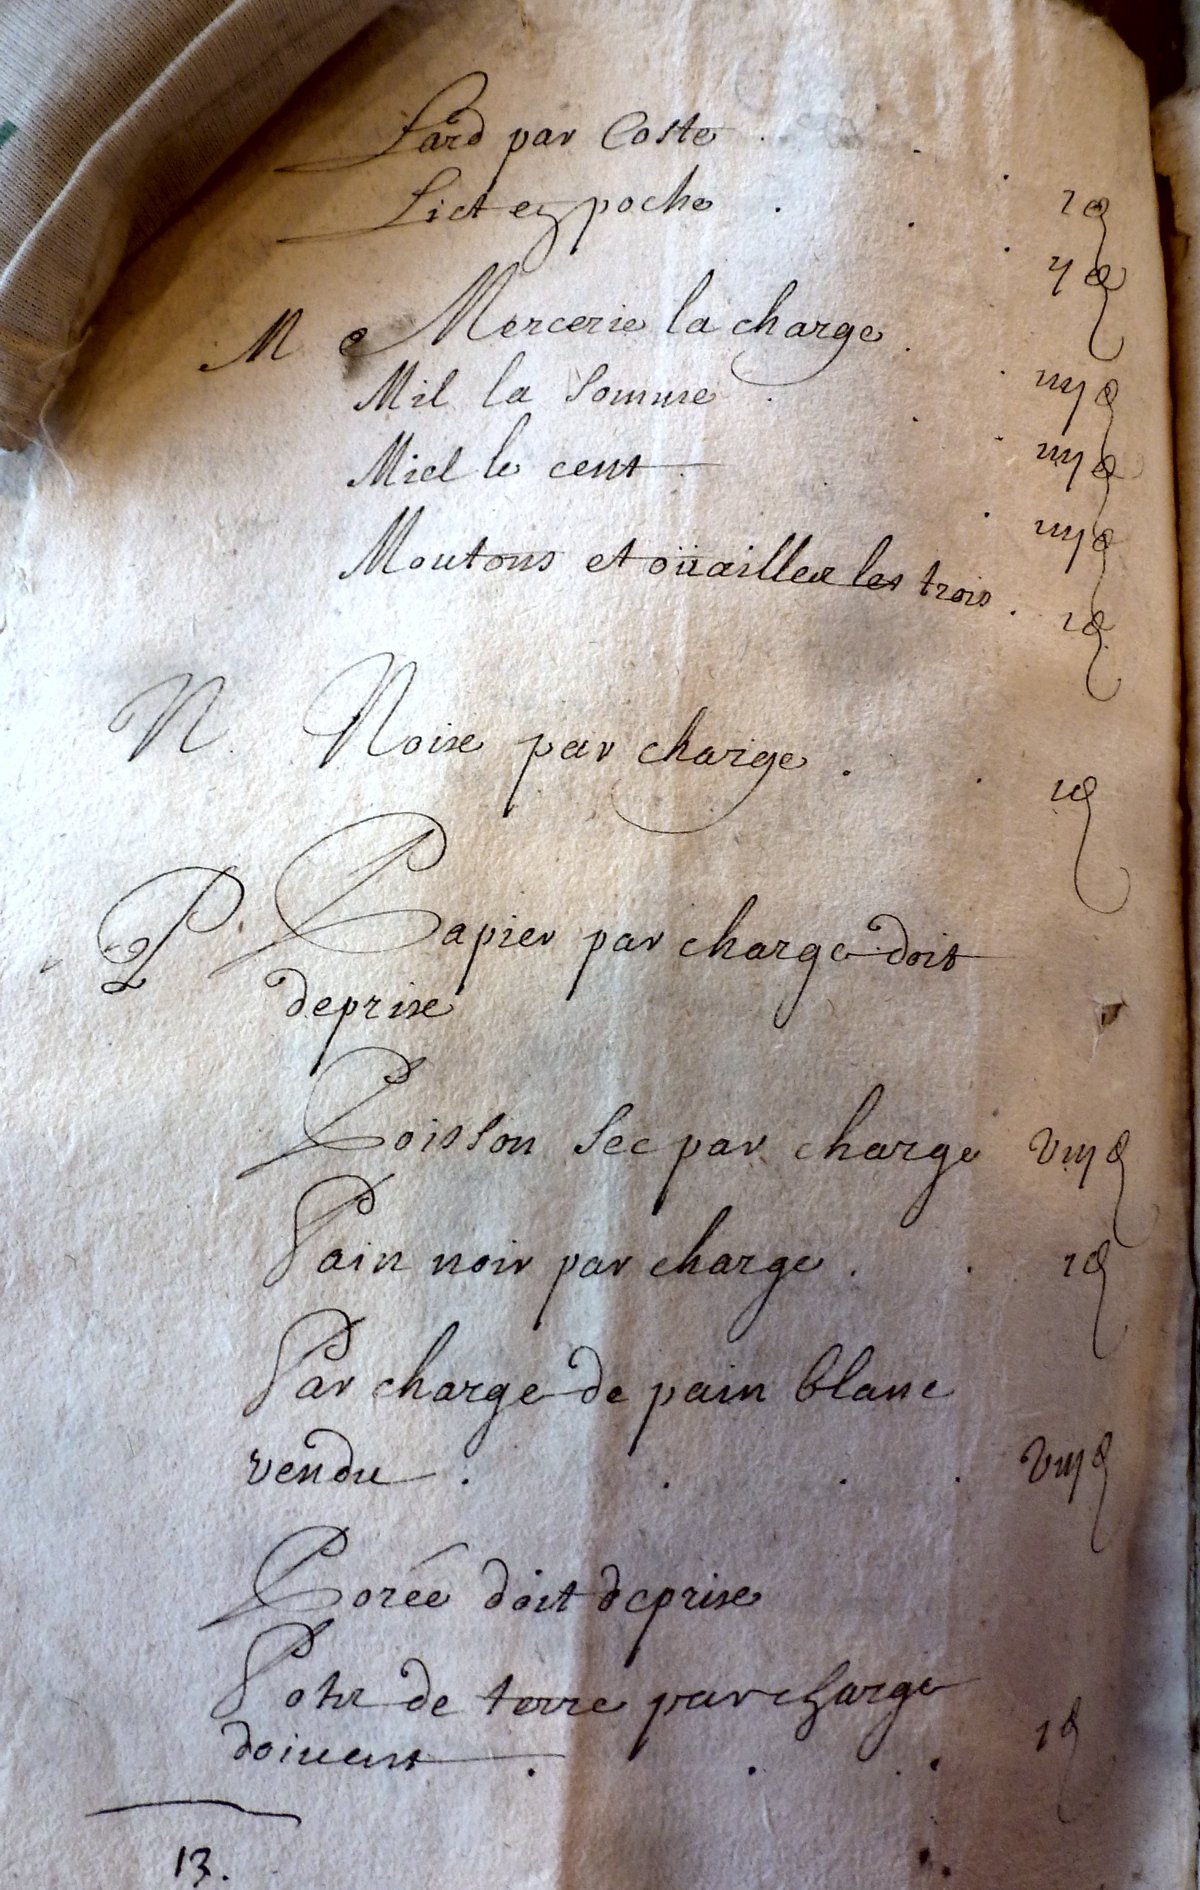 Lard par Coste . . . j d
Lict et poche . . . ij d
M Mercerie la charge . . iiij d
Mil la Somme . . . iiij d
Miel le cent . . iiij d
Moutons et oüailles les trois . j d
N. Noix par charge . . j d
P. Papier par charge doit
deprise
Poisson Sec par charge viij d
Pain noir par charge . . j d
Par charge de pain blanc
vendu . . . . viij d
Porée doit deprise
Potz de terre par charge
doivent . . . j d
13.